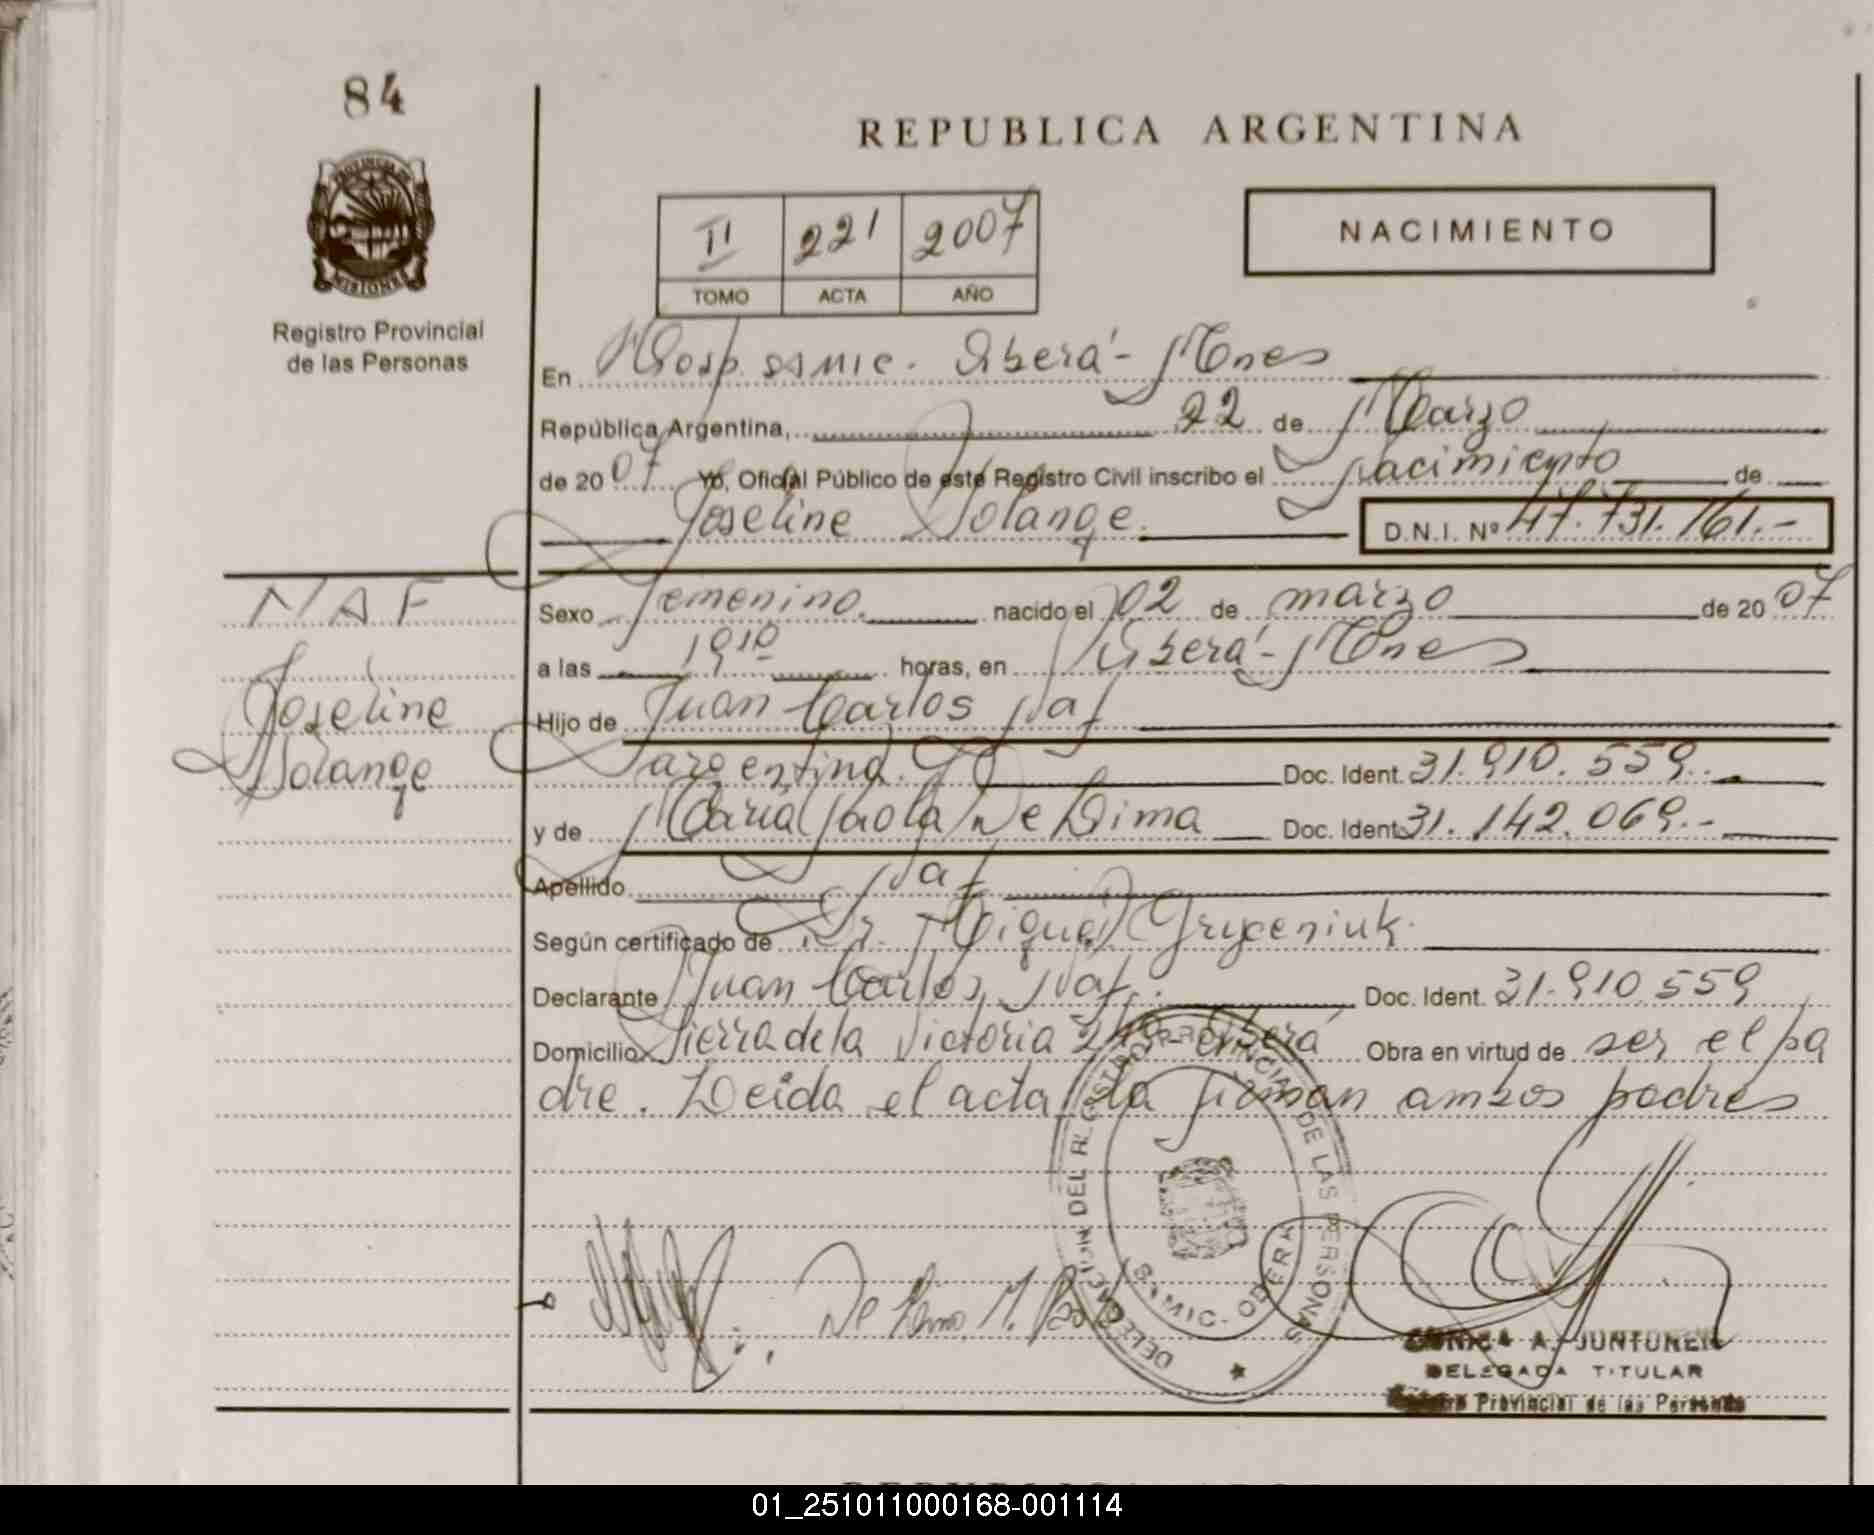 84
REPUBLICA ARGENTINA
PROVINCIA DE
MISIONES
Registro Provincial
de las Personas
II 221 2007
TOMO ACTA AÑO
NACIMIENTO
En Hosp. SAMIC. Oberá - Mnes
República Argentina, 22 de Marzo
de 2007 Yo, Oficial Público de este Registro Civil inscribo el Nacimiento de
Joseline Solange. D.N.I. Nº 47.731.761.-
NAF
Joseline
Solange
Sexo Femenino. nacido el 02 de marzo de 2007
a las 19¹⁰ horas, en Oberá - Mnes
Hijo de Juan Carlos Naf
argentina. Doc. Ident. 31.910.559.-
y de María Paola De Lima Doc. Ident. 31.142.069.-
Apellido Naf
Según certificado de Dr. Miguel Gryceniuk.
Declarante Juan Carlos Naf. Doc. Ident. 31.910.559
Domicilio Tierra de la Victoria Oberá Obra en virtud de ser el pa
dre. Leida el acta la firman ambos padres
De Lima M. Paola
DELEGACION DEL REGISTRO PROVINCIAL DE LAS PERSONAS
SAMIC - OBERA
A. JUNTUNEN
DELEGADA TITULAR
Provincial de las Personas
01_251011000168-001114